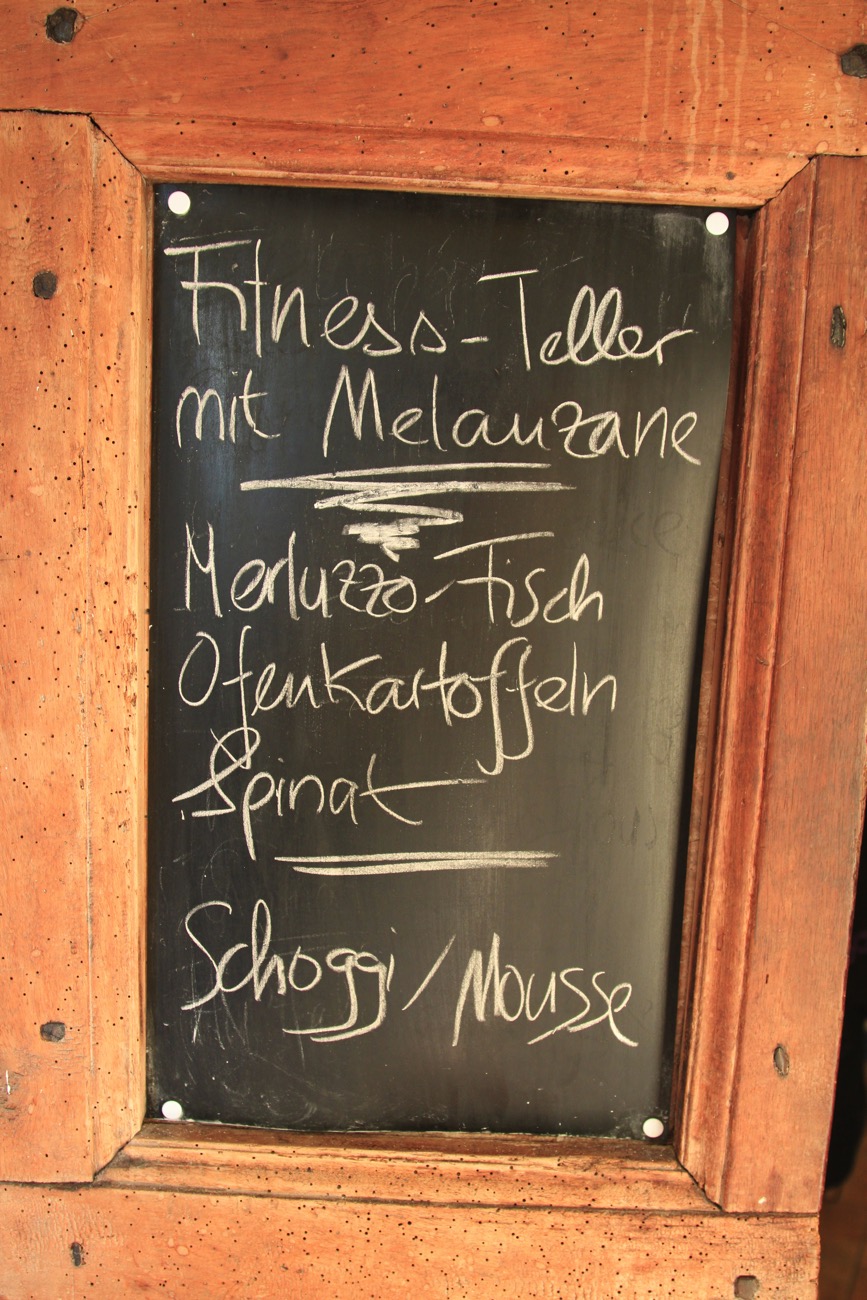 Fitness-Teller
mit Melanzane
Merluzzo-Fisch
Ofenkartoffeln
Spinat
Schoggi/Mousse